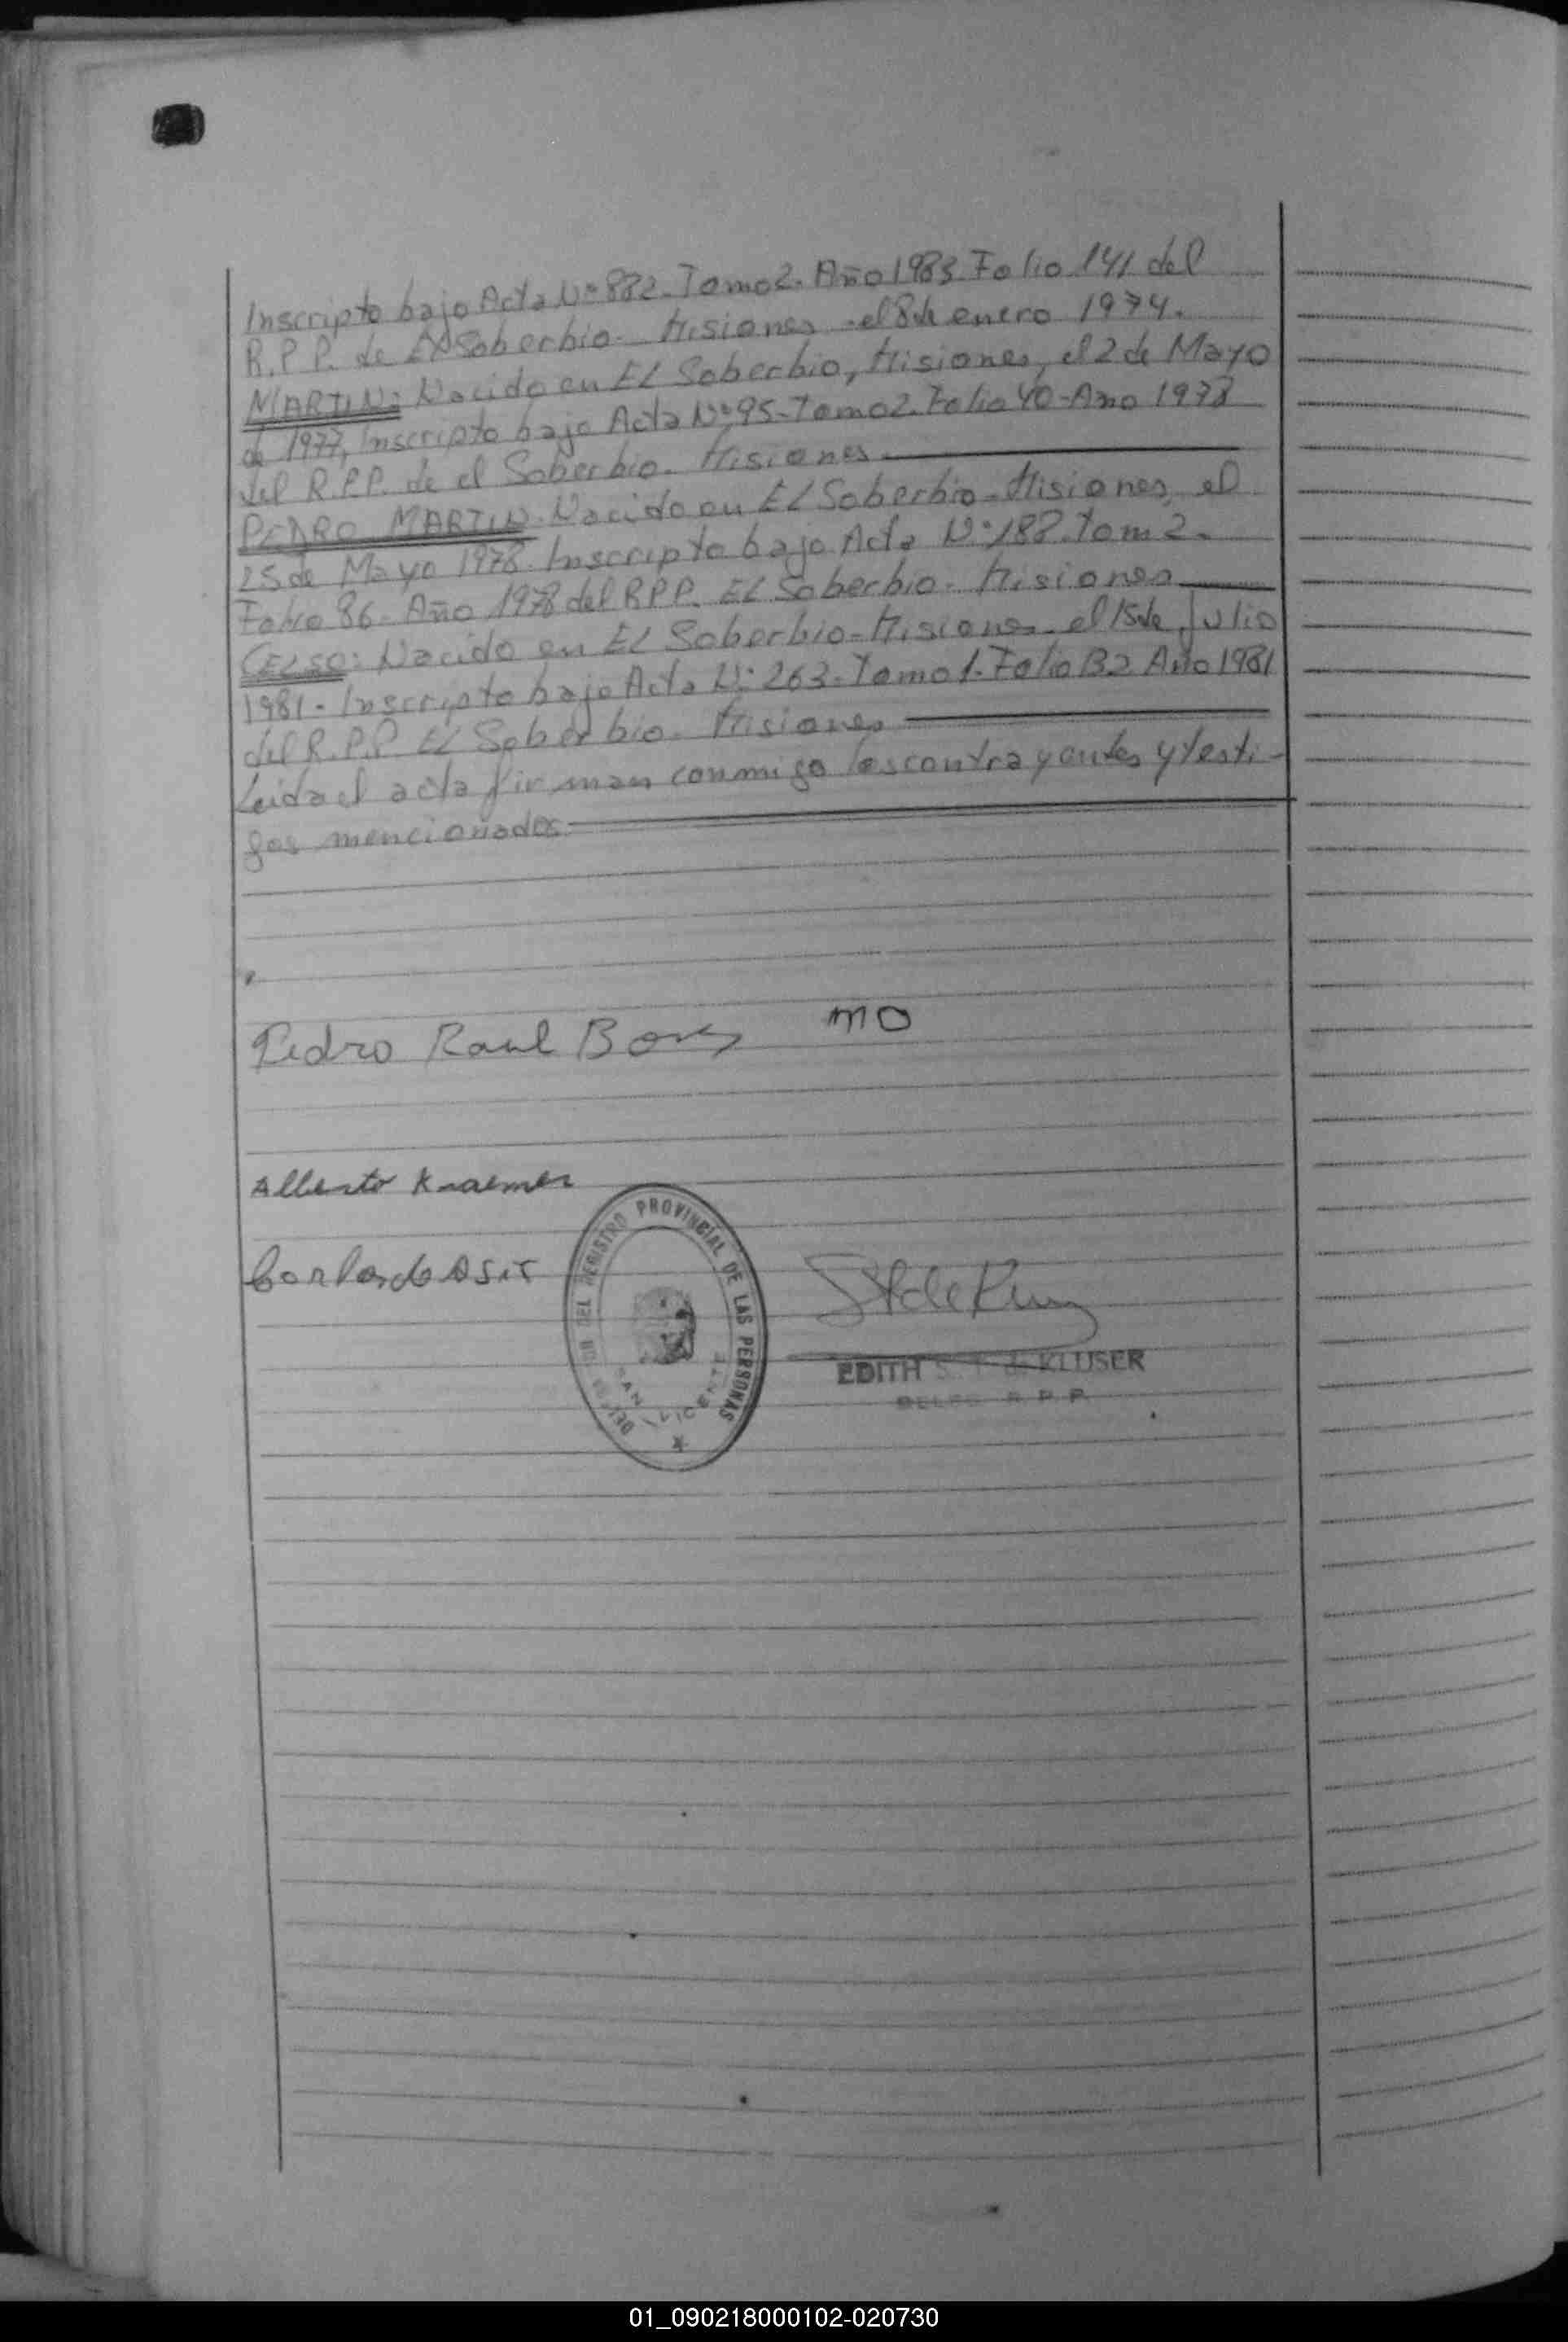 Inscripto bajo Acta Nº 882. Tomo 2. Año 1983. Folio 141 del
R.P.P. de El Soberbio. Misiones - el 8 de enero 1974.
MARTIN: Nacido en EL Soberbio, Misiones, el 2 de Mayo
de 1977, Inscripto bajo Acta Nº 95-Tomo 2. Folio 40-Año 1978
del R.P.P. de el Soberbio. Misiones
PEDRO MARTIN. Nacido en EL Soberbio-Misiones, el
25 de Mayo 1978. Inscripto bajo Acta Nº 188. Tom 2.
Folio 86-Año 1978 del R.P.P. EL Soberbio. Misiones
CELSO: Nacido en EL Soberbio-Misiones. el 15 de Julio
1981-Inscripto bajo Acta Nº 263-Tomo 1-Folio 132 Año 1981
del R.P.P. EL Soberbio. Misiones
Leida el acta firman conmigo los contrayentes y testi-
gos mencionados
Pedro Raul MO
Alberto Kraemer
Carlos de Asis
REGISTRO PROVINCIAL DE LAS PERSONAS
SAN VICENTE
EDITH S. T. de KLUSER
R.P.P.
01_090218000102-020730